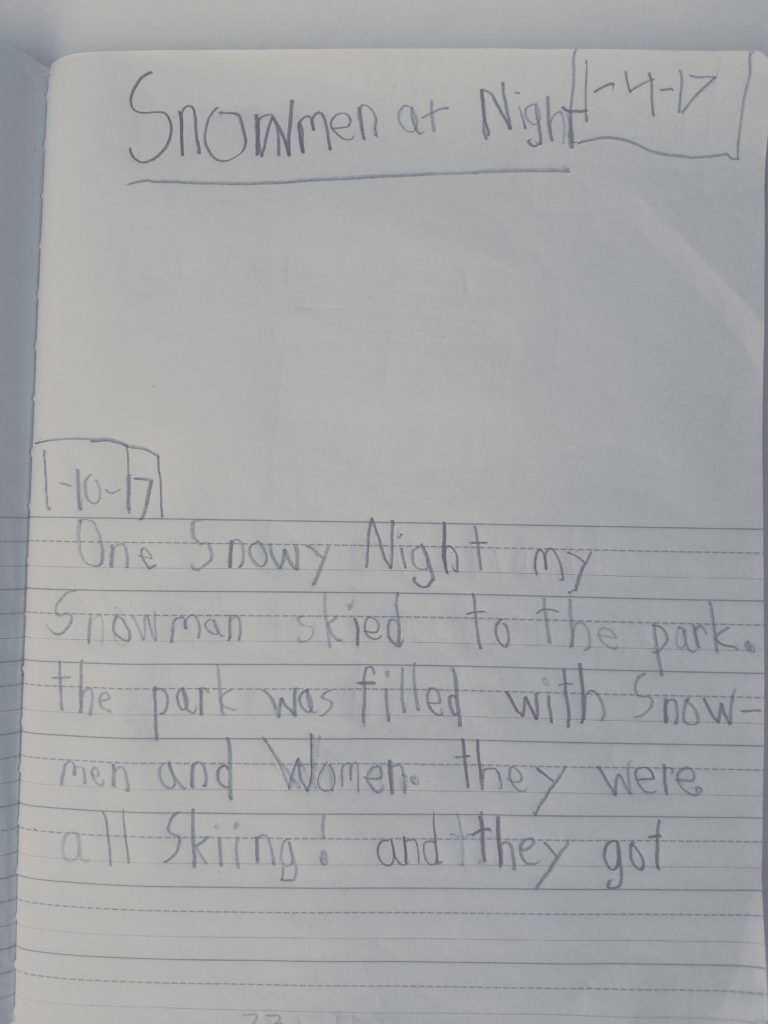 Snowmen at Night
1-4-17
1-10-17
One Snowy Night my
Snowman skied to the park.
the park was filled with Snow-
men and Women. they were
all Skiing! and they got